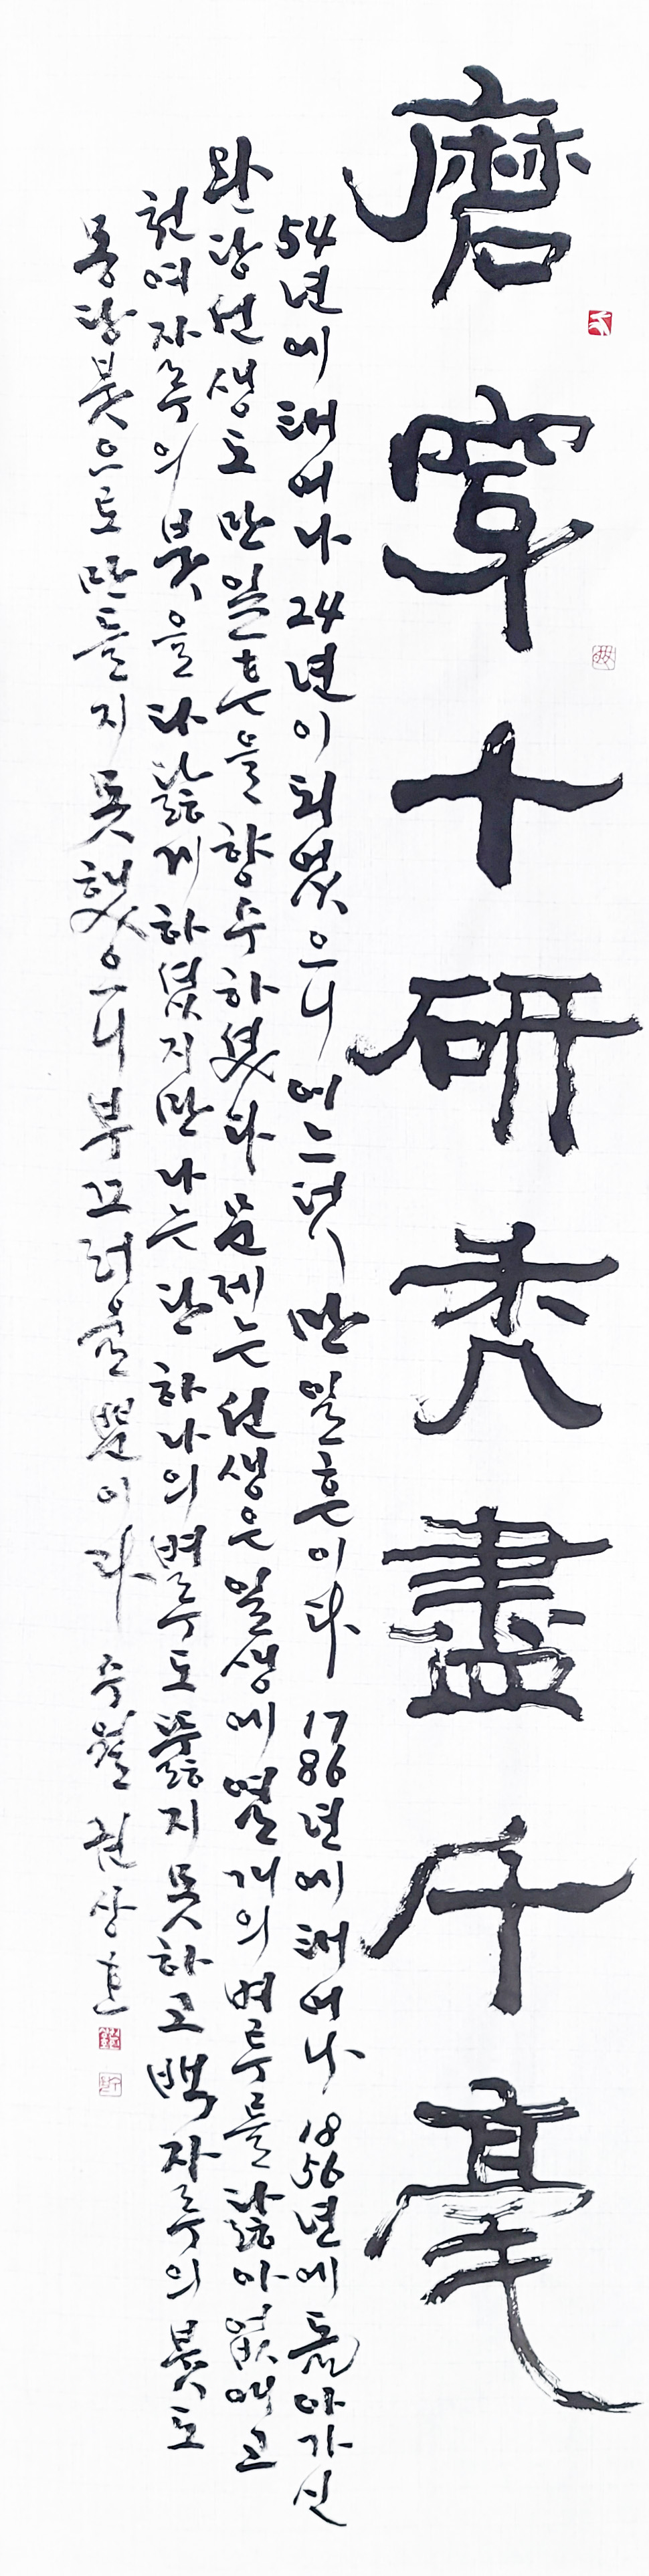 磨穿十研禿盡千毫
54년에 태어나 24년이 되었으니 어느덧 만 일흔이다 1786년에 태어나 1856년에 돌아가신
완당선생도 만 일흔을 향수하셨다 문제는 선생은 일생에 열 개의 벼루를 닳아 없애고
천여 자루의 붓을 다 닳게 하였지만 나는 단 하나의 벼루도 뚫지 못하고 백 자루의 붓도
몽당붓으로 만들지 못했으니 부끄러울 뿐이다 수월 권상호